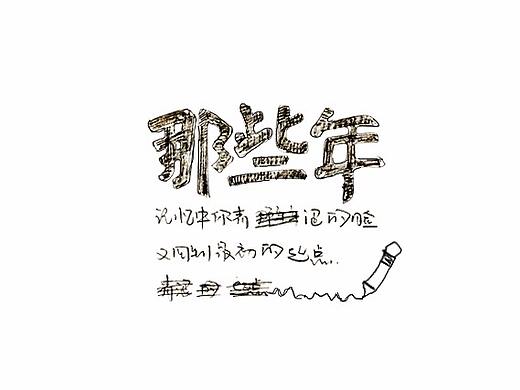 那些年
记忆中你青涩的脸
又回到最初的起点..